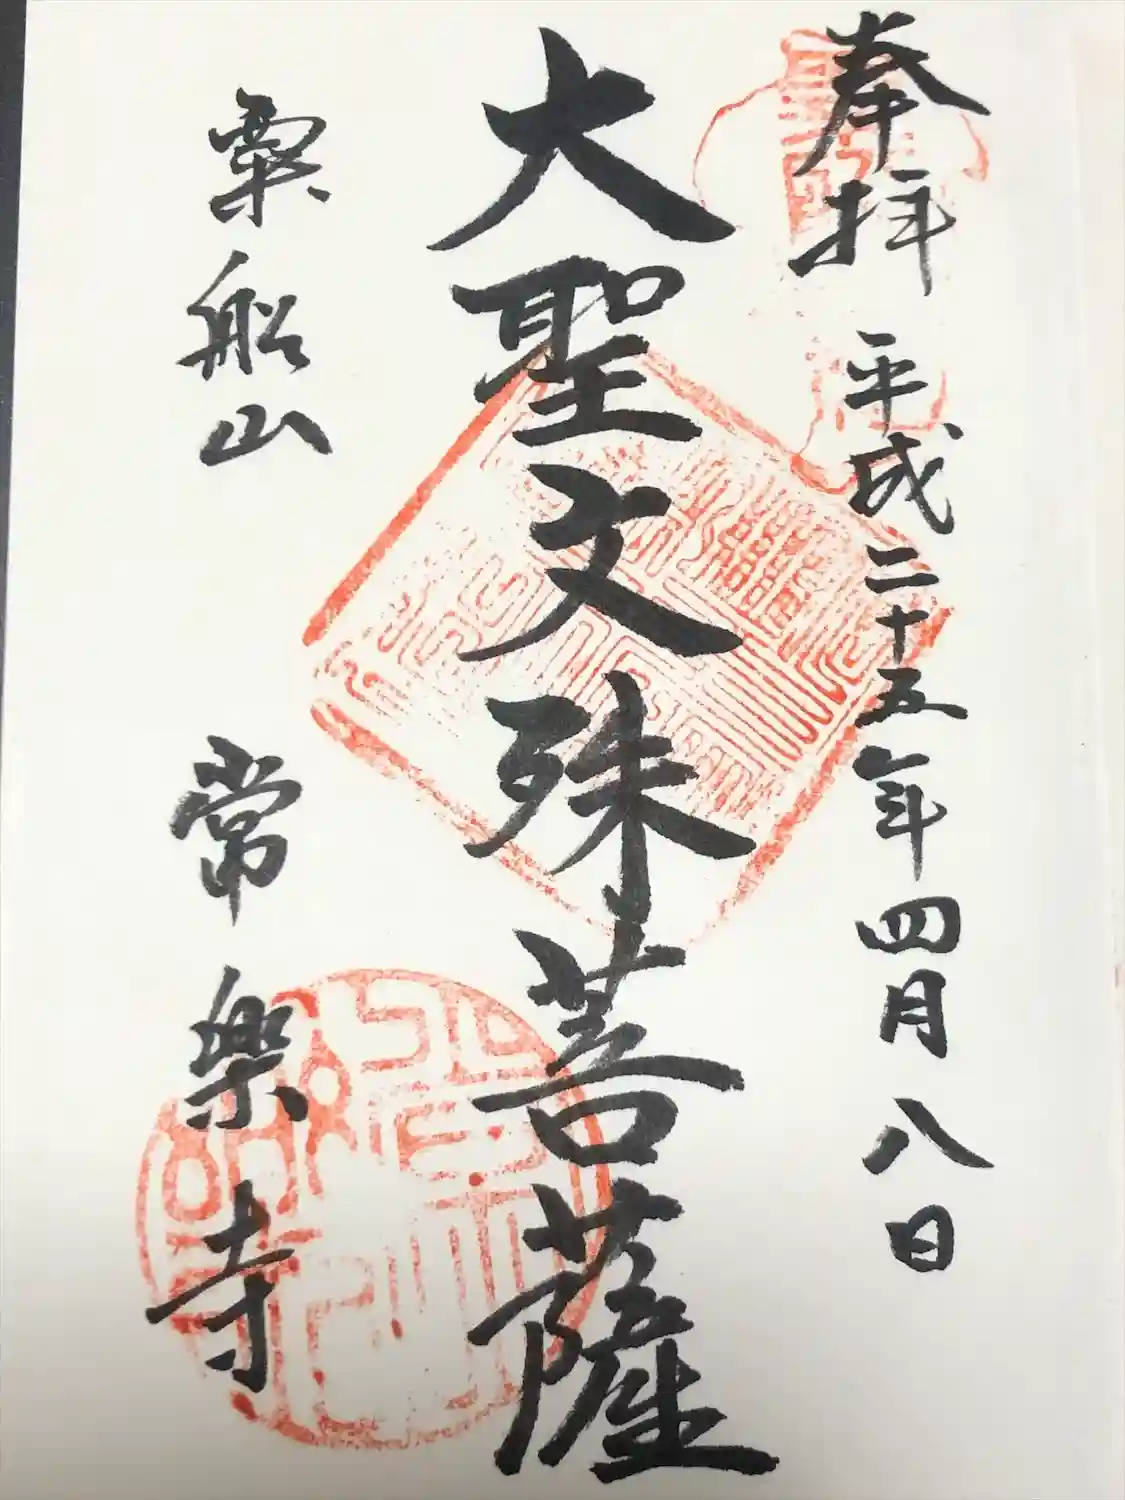 奉拝 平成二十五年四月八日
大聖文殊菩薩
粟船山 常樂寺